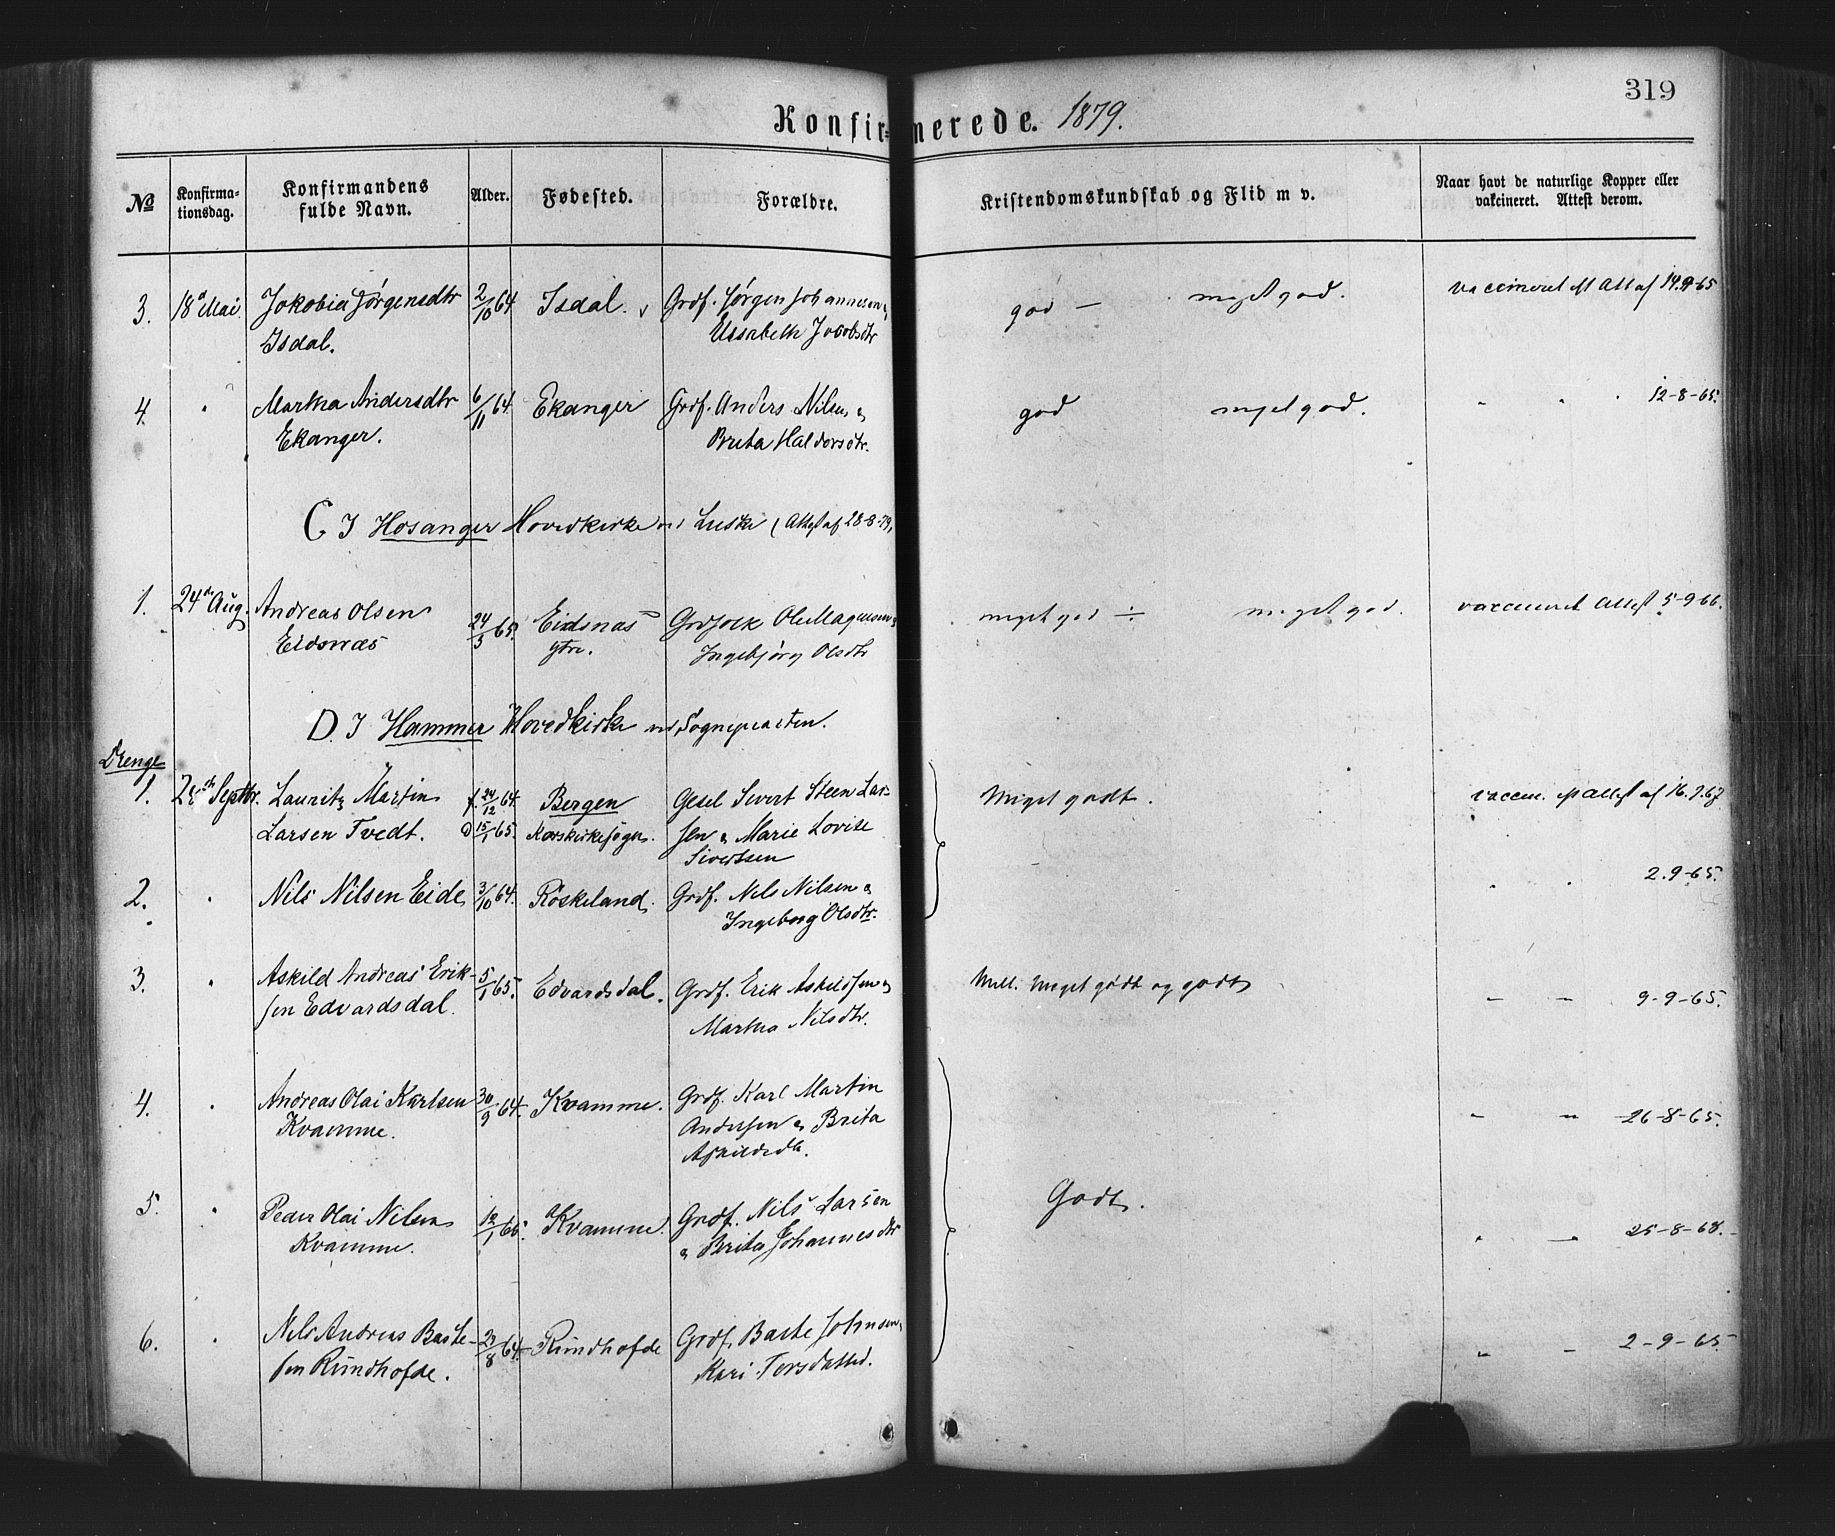 319
Konfirmerede. 1879.
№ Konfirma-tionsdag. Konfirmandens fulde Navn. Alder. Fødested. Forældre. Kristendomskundskab og Flid m v. Naar havt de naturlige Kopper eller vakcineret. Attest derom.
3. 18d Mai. Jokobia Jørgensdtr 2/10 64 Isdal. Grdf. Jørgen Johannesen & god — meget god. vaccineret eft Att af 14.9-65
Isdal. Elisabeth Jacobsdtr
4. " Martha Andersdtr 6/11 64 Ekanger Grdf. Anders Nilsen & god meget god. " " 12-8-65.
Ekanger. Brita Haldorsdtr.
C I Hosanger Hovedkirke ( Attest af 28-8-79,
1. 24de Aug. Andreas Olsen 24/3 65. Eidsnæs Grdfolk Ole Magnusen & meget god ÷ meget god. vaccineret Attest 5-9-66.
Eidsnæs ytre. Ingebjørg Olsdtr
D. I Hammer Hovedkirke ved Sognepresten.
Drenge
1. 28de Septbr. Lauritz Martin f. 24/12 64. Bergen Gesel Sivert Steen Lar- Meget godt. vaccin. eft attest af 16.9.67
Larsen Tvedt. D 15/1 65. Korskirkesogn. sen & Marie Lovise
Sivertsen
2. " Nils Nilsen Eide 3/10 64. Röskeland. Grdf. Nils Nilsen & " " 2.9-65.
Ingeborg Olsdtr.
3. " Askild Andreas Erik- 5/1 65. Edvardsdal. Grdf. Erik Askildsen & Mell. meget godt og godt " " 9-9-65.
sen Edvardsdal. Martha Nilsdtr.
4. " Andreas Olai Karlsen 30/9 64. Kvamme. Grdf. Karl Martin " " 26-8-65.
Kvamme. Andersen & Brita
Askildsdtr.
5. " Peder Olai Nilsen Kvamme. Grdf. Nils Larsen Godt. " — 25-8-68.
Kvamme. & Brita Johannesdtr
6. " Nils Andreas Baste- Rundhofde Grdf. Baste Johnsen & " — 2-9-65.
sen Rundhofde. Kari Torsdatter.